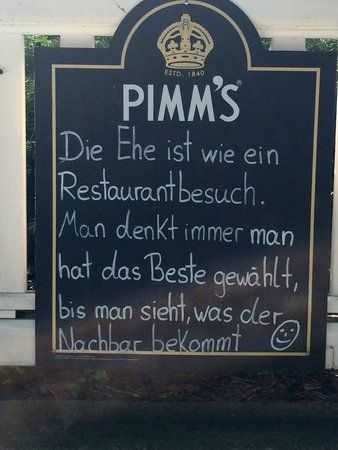 ESTD. 1840
PIMM'S
Die Ehe ist wie ein
Restaurantbesuch.
Man denkt immer man
hat das Beste gewählt,
bis man sieht, was der
Nachbar bekommt